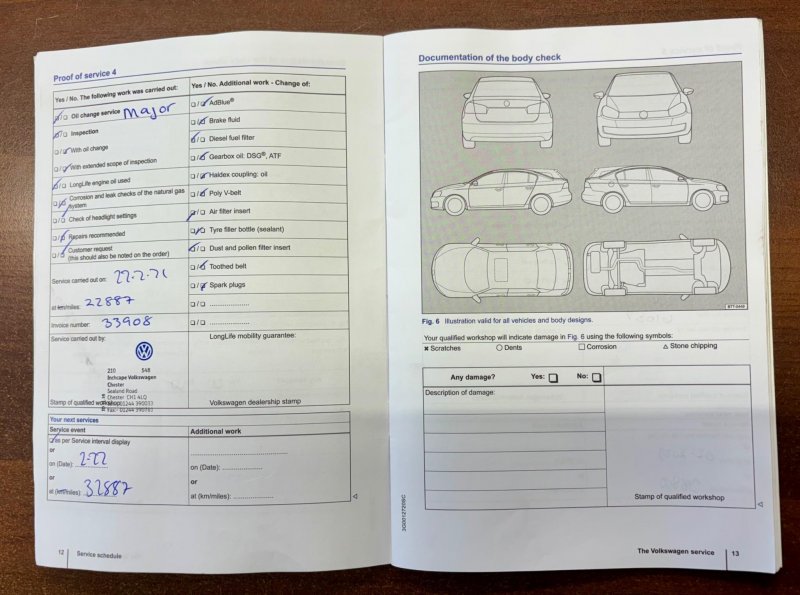 Proof of service 4
Yes / No. The following work was carried out:
☐/☐ Oil change service Major
☐/☐ Inspection
☐/☐ With oil change
☐/☐ With extended scope of inspection
☐/☐ LongLife engine oil used
☐/☐ Corrosion and leak checks of the natural gas
system
☐/☐ Check of headlight settings
☐/☐ Repairs recommended
☐/☐ Customer request
(this should also be noted on the order)
Service carried out on: 22.2.21
at km/miles: 22887
Invoice number: 33908
Service carried out by:
210 548
Inchcape Volkswagen
Chester
Sealand Road
Chester CH1 4LQ
01244 390033
Fax:- 01244
Stamp of qualified workshop
Yes / No. Additional work - Change of:
☐/☐ AdBlue®
☐/☐ Brake fluid
☐/☐ Diesel fuel filter
☐/☐ Gearbox oil: DSG®, ATF
☐/☐ Haldex coupling: oil
☐/☐ Poly V-belt
☐/☐ Air filter insert
☐/☐ Tyre filler bottle (sealant)
☐/☐ Dust and pollen filter insert
☐/☐ Toothed belt
☐/☐ Spark plugs
☐/☐ ....................
☐/☐ ....................
LongLife mobility guarantee:
Volkswagen dealership stamp
Your next services
Service event
☐ as per Service interval display
or
on (Date): 2-22
or
at (km/miles): 32887
Additional work
....................
on (Date): ....................
or
at (km/miles): ....................
12 Service schedule
Documentation of the body check
B7T-0448
Fig. 6 Illustration valid for all vehicles and body designs.
Your qualified workshop will indicate damage in Fig. 6 using the following symbols:
✖ Scratches ○ Dents □ Corrosion △ Stone chipping
Any damage? Yes: ☐ No: ☐
Description of damage:
Stamp of qualified workshop
3G0012720SC
The Volkswagen service 13